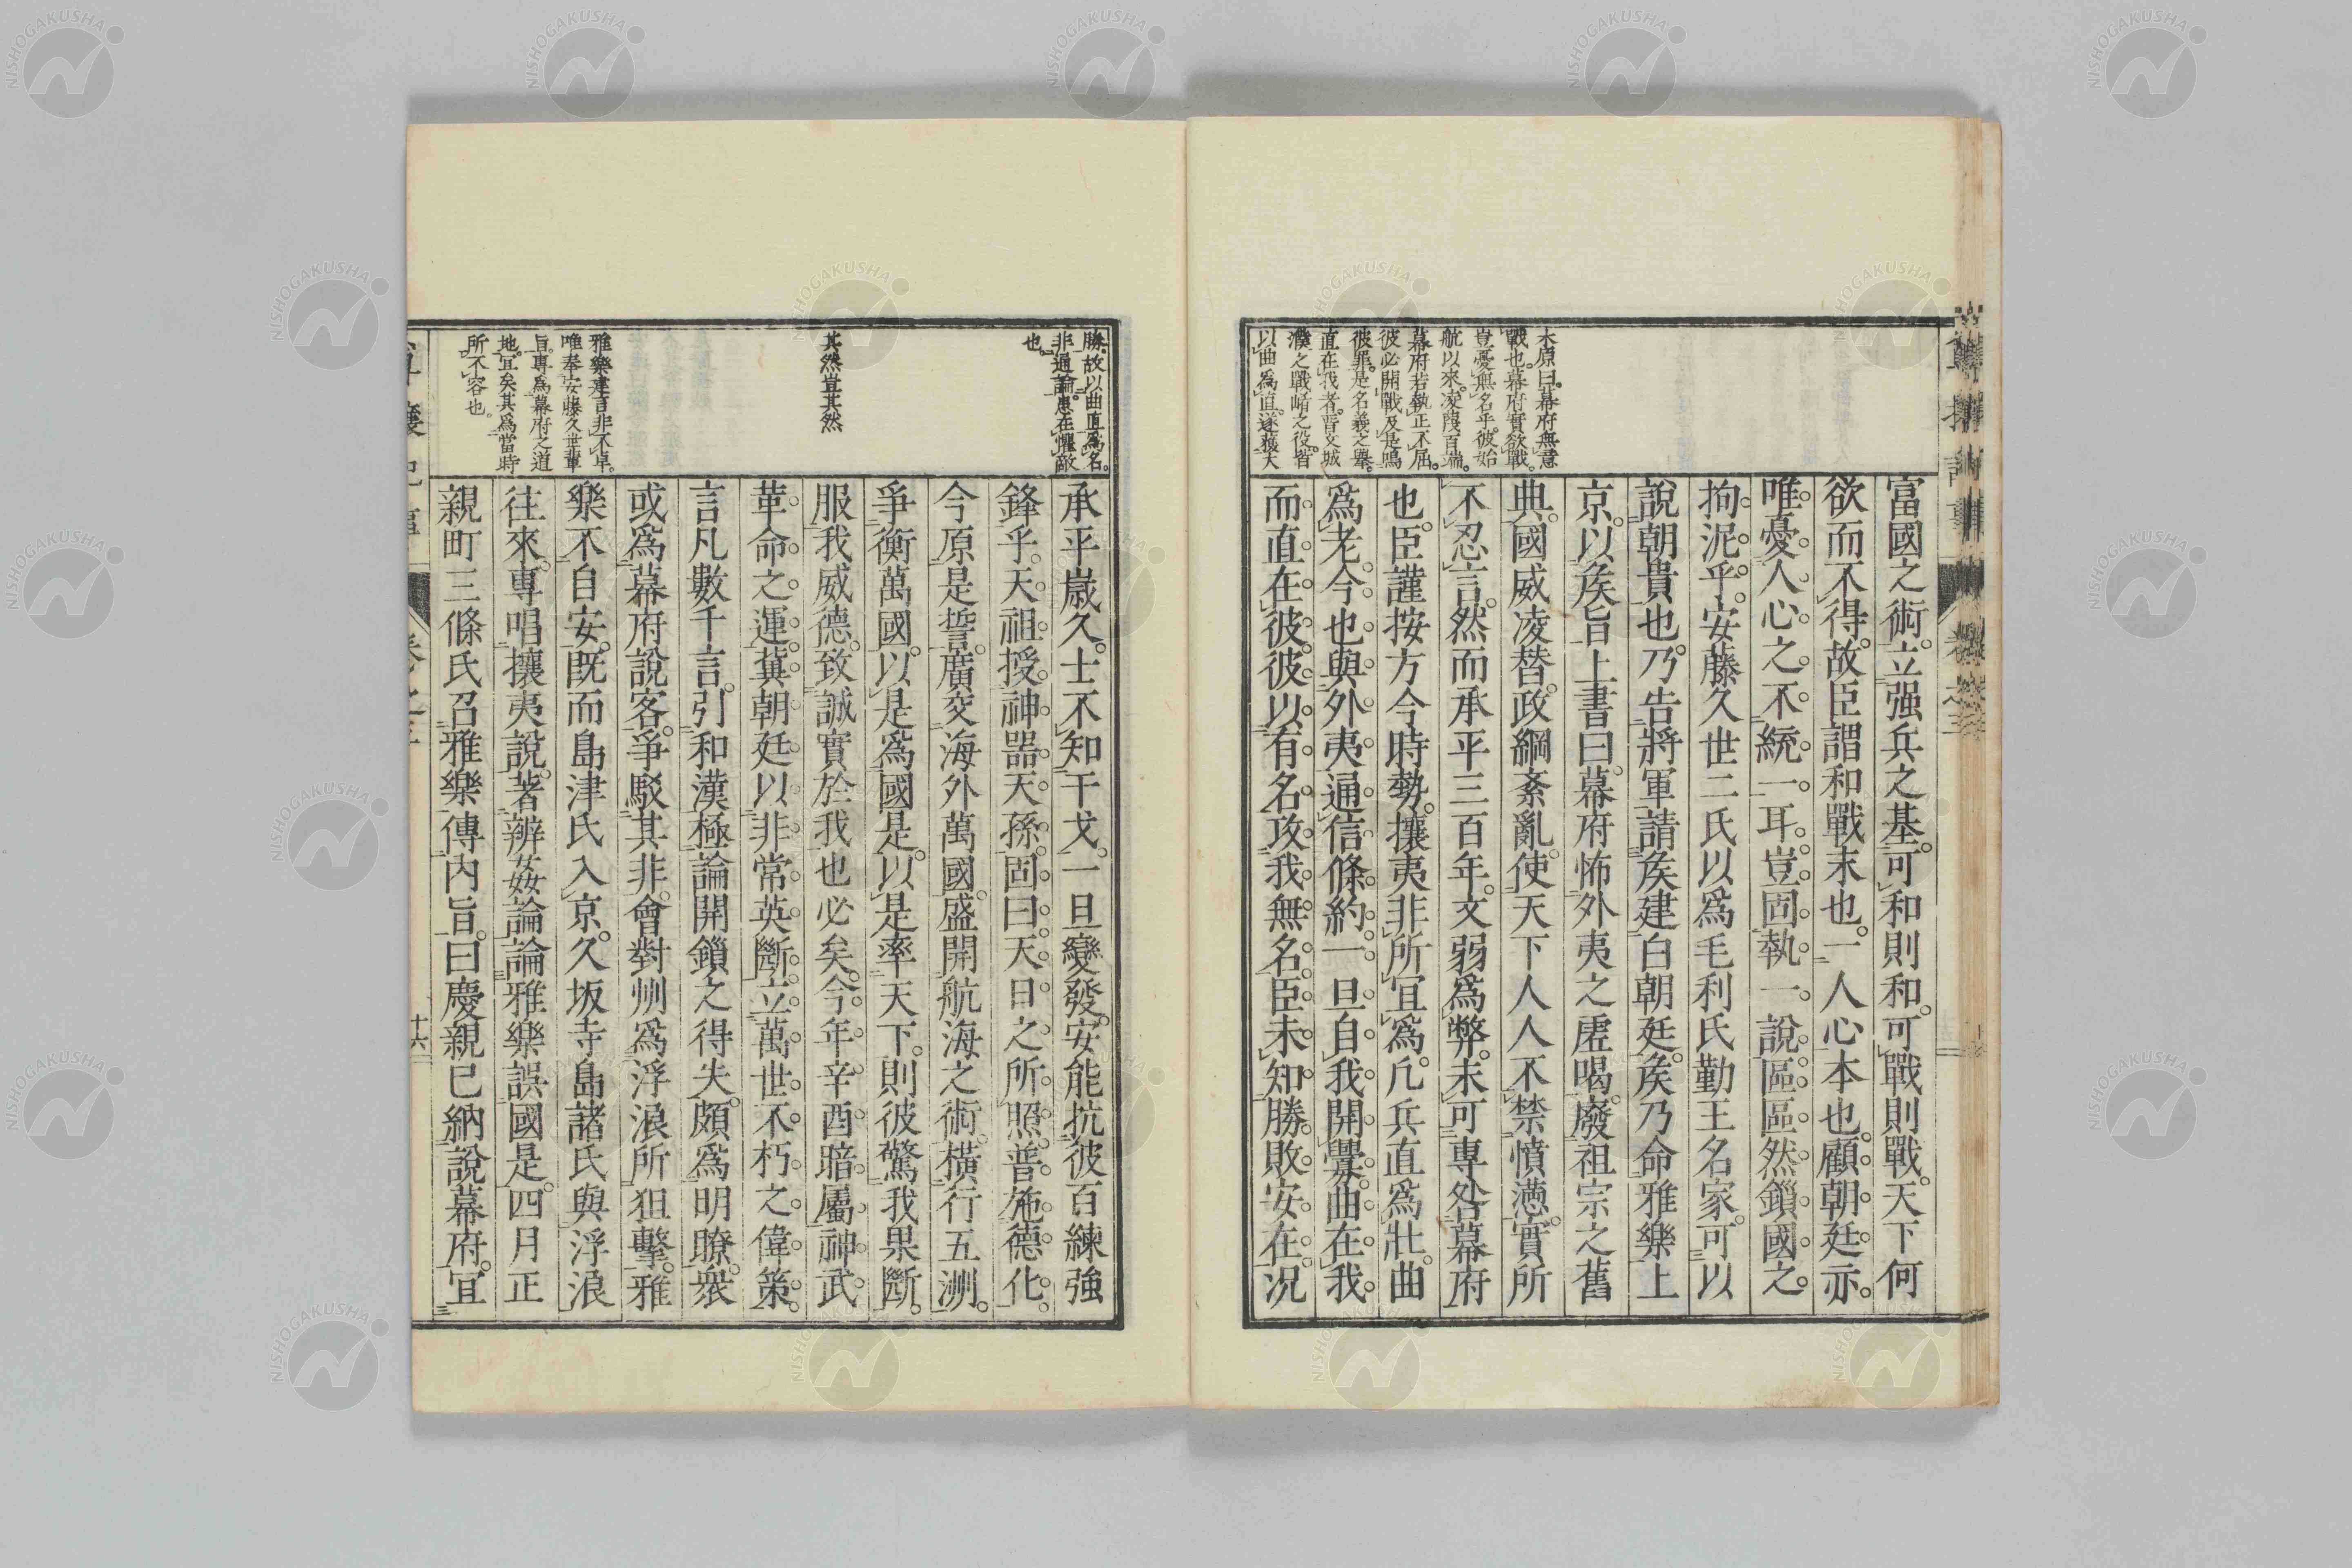 富國之術。立强兵之基。可和則和。可戰則戰。天下何
欲而不得。故臣謂和戰末也。一人心本也。顧朝廷亦。
唯憂人心之不統一耳。豈固執一說。區區然鎖國之。
拘泥乎。安藤久世二氏以爲毛利氏勤王名家。可以
說朝貴也。乃告將軍請矦建白朝廷。矦乃命雅樂上
京。以矦旨上書曰。幕府怖外夷之虛喝。廢祖宗之舊
典。國威凌替。政綱紊亂。使天下人人不禁憤懣。實所
不忍言。然而承平三百年。文弱爲弊。未可專咎幕府
也。臣謹按方今時勢。攘夷非所宜爲。凡兵直爲壯。曲
爲老。今也與外夷通信條約。一旦自我開釁。曲在我。
而直在彼。彼以有名攻我無名。臣未知勝敗安在。况
木原曰。幕府無意
戰也。幕府實欲戰。
豈憂無名乎。彼始
航以來。凌蔑百端。
幕府若執正不屈。
彼必開戰。及是鳴
彼罪。是名義之擧。
直在我者。晋文城
濮之戰崤之役。皆
以曲爲直。遂獲大
承平歳久。士不知干戈。一旦變發。安能抗彼百練強
鋒乎。天祖授神器天孫。固曰。天日之所照。普施德化。
今原是誓。廣交海外萬國。盛開航海之術。橫行五洲。
爭衡萬國。以是爲國是。以是率天下。則彼驚我果斷。
服我威德。致誠實於我也必矣。今年辛酉。暗屬神武
革命之運。冀朝廷以非常英斷。立萬世不朽之偉策。
言凡數千言。引和漢極論開鎖之得失。頗爲明瞭。衆
或爲幕府說客。爭駁其非。會對州爲浮浪所狙擊。雅
樂不自安。既而島津氏入京。久坂寺島諸氏與浮浪
往來。專唱攘夷說。著辨姦論論雅樂誤國是。四月正
親町三條氏召雅樂傳內旨。曰慶親已納說幕府。宜
勝。故以曲直爲名。
非通論。患在懼敵
也。
其然豈其然
雅樂建言非不卓。
唯奉安藤久世輩
旨。專爲幕府之道
地。宜矣其爲當時
所不容也。
十六